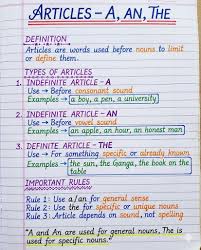 ARTICLES – A, AN, THE
DEFINITION
Articles are words used before nouns to limit
or define them.
TYPES OF ARTICLES
1. INDEFINITE ARTICLE - A
Use → Before consonant sound
Examples → a boy, a pen, a university
2. INDEFINITE ARTICLE - AN
Use → Before vowel sound
Examples → an apple, an hour, an honest man
3. DEFINITE ARTICLE - THE
Use → For something specific or already known
Examples → the sun, the Ganga, the book on the
table
IMPORTANT RULES
Rule 1: Use a/an for general sense
Rule 2: Use the for specific or unique nouns
Rule 3: Article depends on sound, not spelling
"A and An are used for general nouns, The is
used for specific nouns."